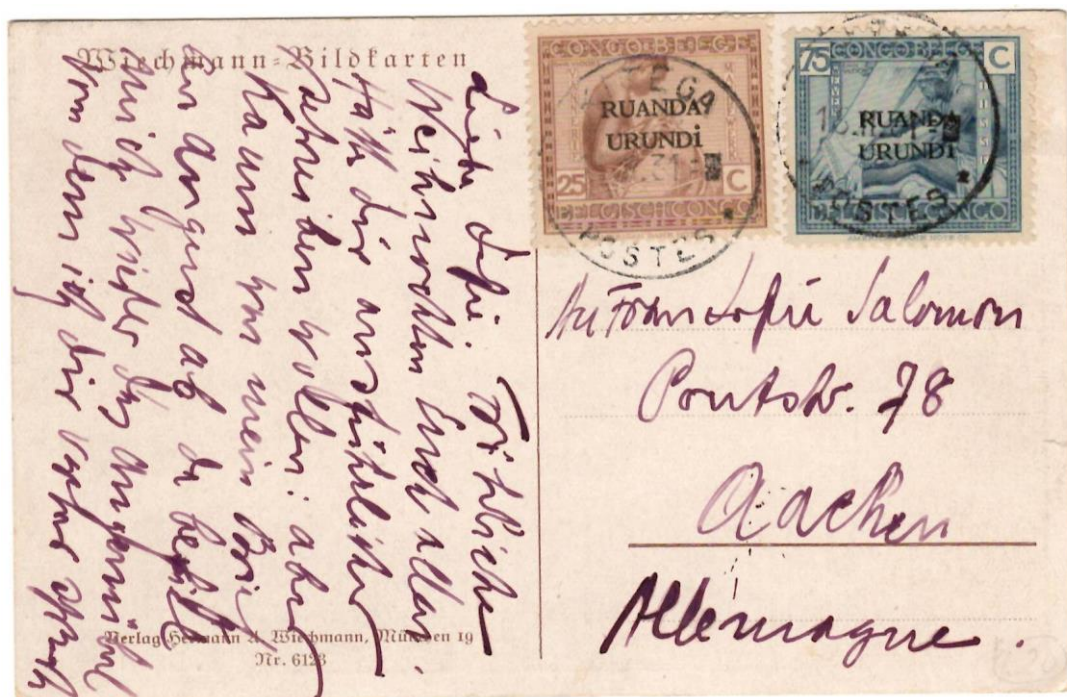 Wiechmann-Bildkarten
Liebe Sofie. Fröhliche
Weihnachten Euch allen.
Hätte dir ausführlicher
schreiben wollen: aber
kaum war mein Brief
an August ab da befiel
mich wieder das
von dem ich dir vorher sprach
Verlag Hermann A. Wiechmann, München 19
Nr. 6123
CONGO BELGE
RUANDA
URUNDI
25 C
BELGISCH CONGO
TEGA
31
POSTES
75 CONGO BELGE C
RUANDA
URUNDI
BELGISCH CONGO
POSTES
An Frau Sofie Salomon
Pontstr. 78
Aachen
Allemagne.